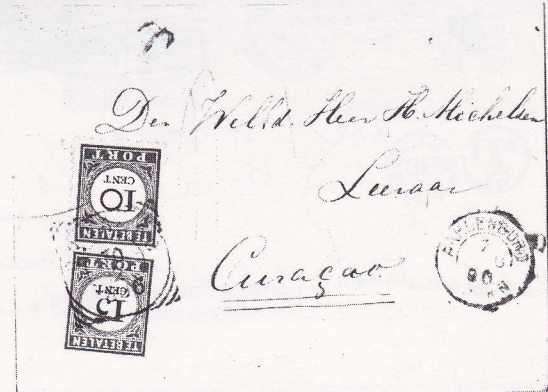 Den Welld. Heer H. Michelsen
Leeraar
Curaçao
TE BETALEN
10
CENT
PORT
TE BETALEN
15
CENT.
PORT
7
90